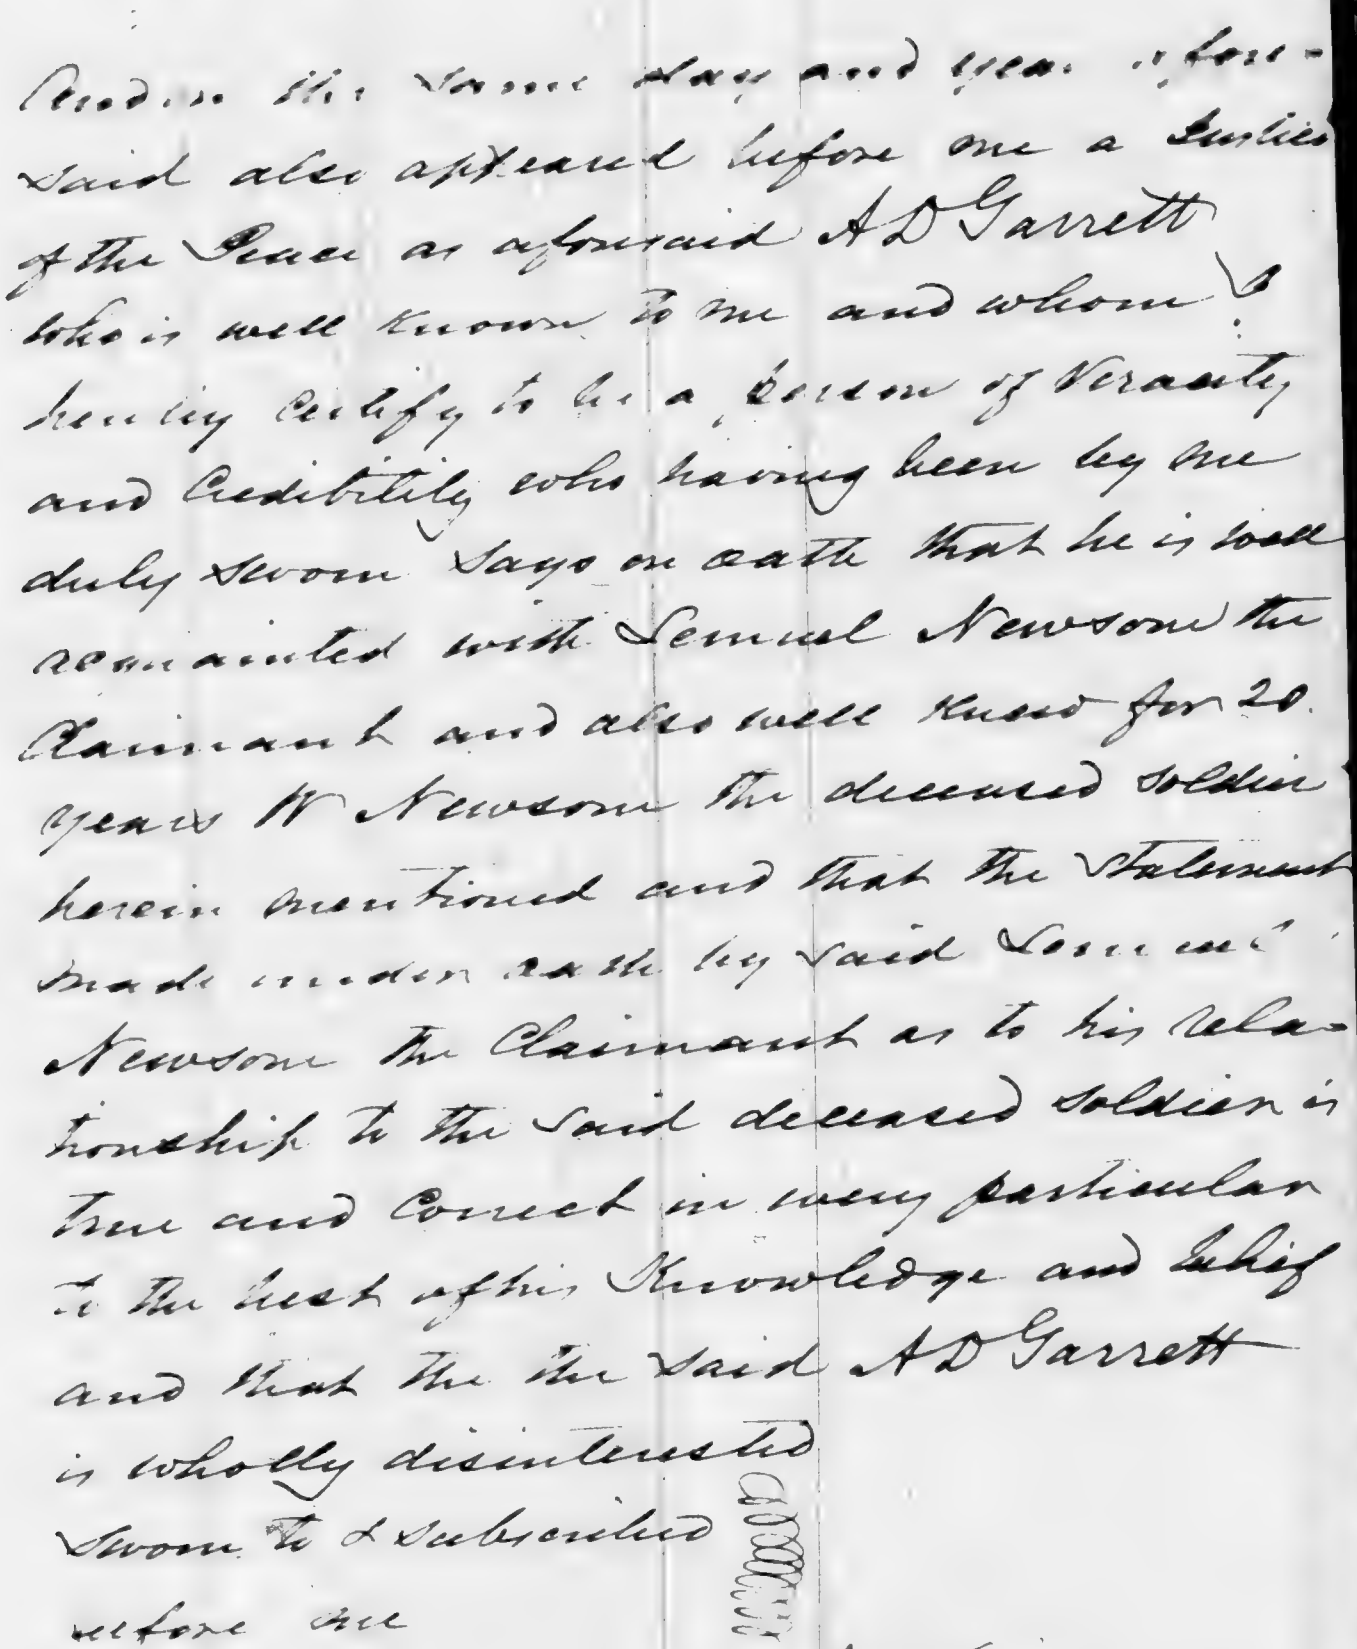 And on the same day and year afore-
said also appeared before me a Justice
of the Peace as aforesaid A D Garrett
who is well known to me and whom I
hereby Certify to be a person of Veracity
and Credibility who having been by me
duly sworn says on oath that he is well
acquainted with Lemuel Newsom the
Claimant and also well knew for 20
years W Newsom the deceased soldier
herein mentioned and that the statement
made under oath by said Lemuel
Newsom the Claimant as to his rela-
tionship to the said deceased soldier is
true and Correct in every particular
to the best of his Knowledge and belief
and that the the said A D Garrett
is wholly disinterested
sworn to & subscribed
before me